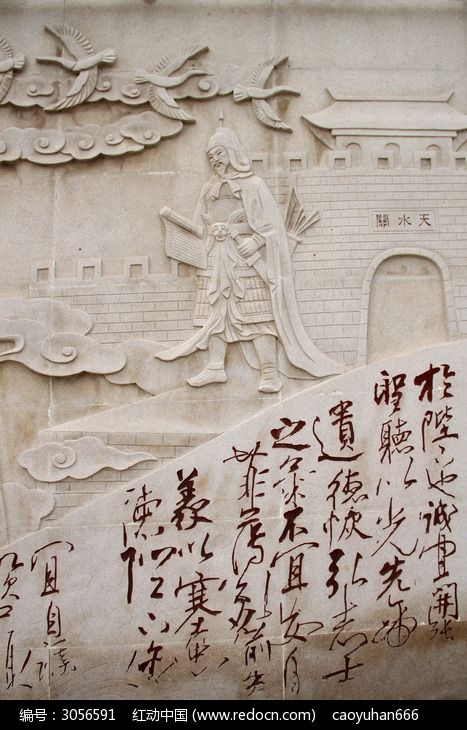 天水關
於陛下也誠宜開張
聖聽以光先帝
遺德恢弘志士
之氣不宜妄自
菲薄引喻失
義以塞忠
宜自謀
编号:3056591 红动中国 (www.redocn.com) caoyuhan666